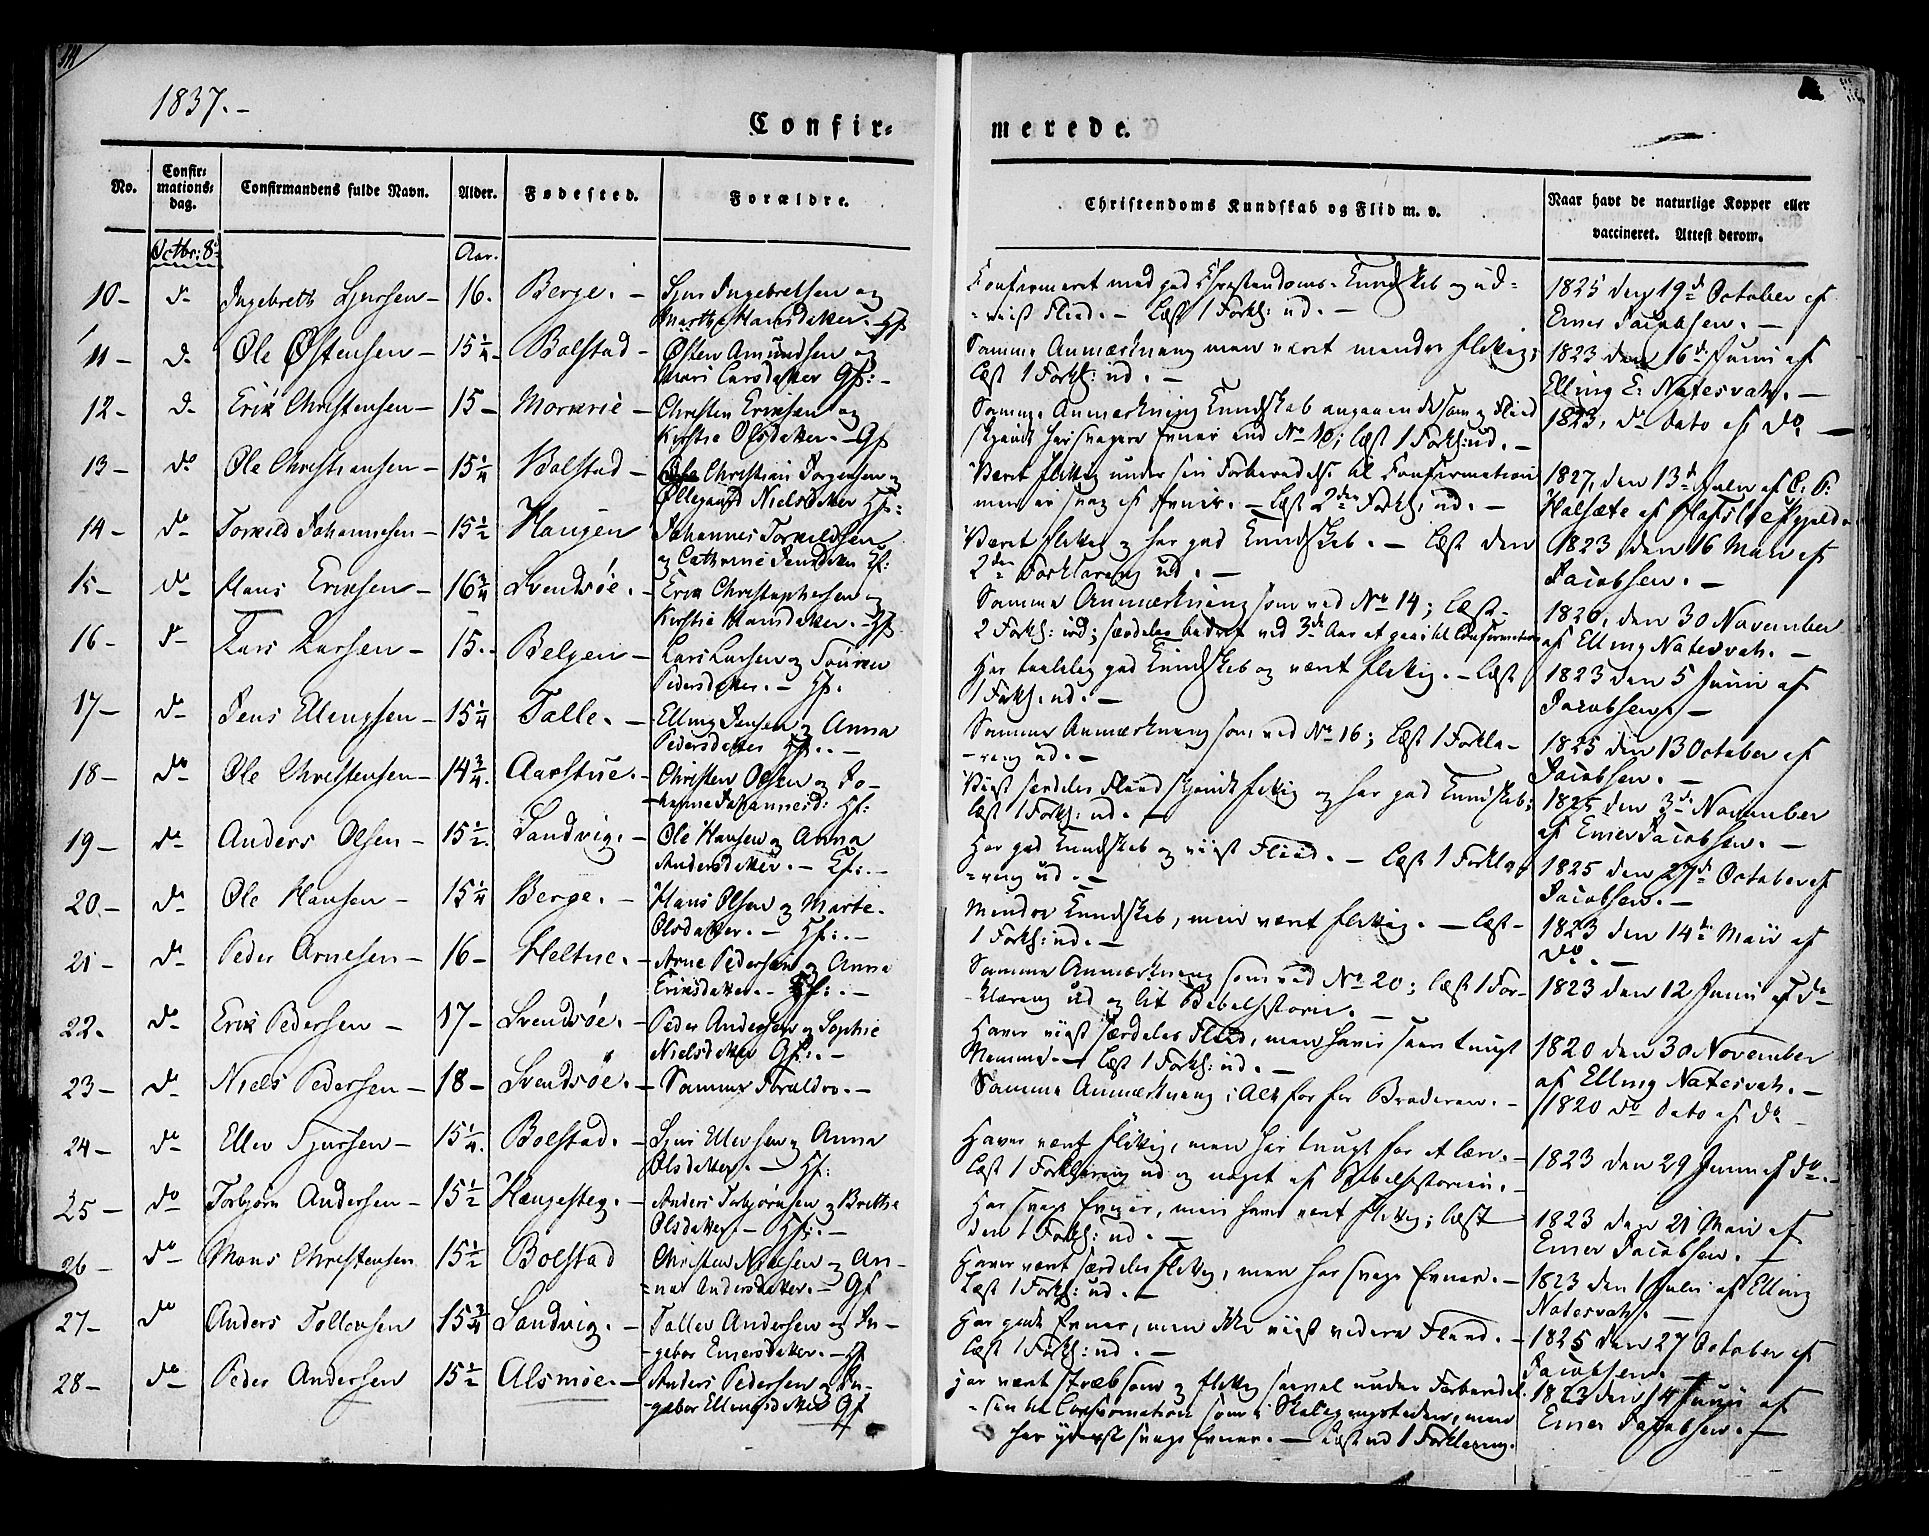 1837.-
Confir=
merede.
No.
Confir=
mations=
dag.
Confirmandens fulde Navn.
Alder.
Fødested.
Forældre.
Christendoms Kundskab og Flid m. v.
Naar havt de naturlige Kopper eller
vaccineret. Attest derom.
Octbr: 8de
Aar.
10- do Ingebreth Sjursen- 16. Berge.- Sjur Ingebretsen og
Marthe Hansdatter. Hf
Confirmeret med god Christendoms-Kundskab og ud=
=viist Fliid.- Læst 1 Forkl: ud.-
1825 den 19de October af
Emer Jacobsen.-
11- do Ole Østensen- 15 1/4- Bolstad- Østen Amundsen og
Mari Larsdatter Gf:-
Samme Anmærkning men været mendre flittig;
læst 1 Forkl: ud.-
1823 den 16de Juni af
Elling E. Natesvah.-
12- do Erik Christensen- 15- Morkrie- Christen Eriksen og
Kirstie Olsdatter.- Gf
Samme Anmærkning Kundskab angaaende som og Fliid
skjøndt har svagere Evner end No 10; læst 1 Forkl: ud.-
1823, do dato af do-
13- do Ole Christiansen- 15 1/4 Bolstad- Christian Jørgensen og
Øllegaard Nielsdatter Hf:
Været flittig under sin Forberedelse til Confirmation
men er svag af Evner.- Læst 2den Forkl: ud.-
1827, den 13de Julii af C. P.
Halsæte af Hafsloe
14- do Torkild Johannesen- 15 1/2 Haugen Johannes Torkildsen
og Cathrine Jensdatter Hf:
Været flittig og har god Kundskab.- Læst den
2den Forklaring ud.-
1823 den 16 Maii af
Jacobsen.-
15- do Hans Eriksen- 16 3/4 Svendsøe.- Erik Christophersen og
Kirstie Hansdatter.- Hf
Samme Anmærkning som ved No 14; læst-
2 Forkl: ud; særdeles bedret ved 3die Aar at gaae til Confirmation
1820, den 30 November
af Elling Natesvah.-
16- do Lars Larsen- 15.- Belgen- Lars Larsen og
Pedersdatter.- Hf.
Har taalelig god Kundskab og været flittig.- Læst
1 Forkl. ud.-
1823 den 5 Junii af
Jacobsen.-
17- do Jens Ellingsen- 15 1/4 Talle.- Elling Jensen og Anna
Pedersdatter Hf..-
Samme Anmærkning som ved No 16; læst 1 Forkla-
-ring ud.-
1825 den 13 October af
Jacobsen.-
18- do Ole Christensen- 14 3/4. Aarstue.- Christen Olsen og Jo-
-hanne Johannesd: Hf:
Viist særdeles Fliid skjøndt flittig og har god Kundskab;
læst 1 Forkl: ud.-
1825 den 3die November
af Emer Jacobsen.-
19- do Anders Olsen- 15 1/2. Sandvig.- Ole Hansen og Anna
Andersdatter.- Hf:.-
Har god Kundskab og viist Fliid.- Læst 1 Forkla-
-ring ud.-
1825 den 27de October af
Jacobsen.-
20.- do Ole Hansen- 15 1/4 Berge.- Hans Olsen og Marte-
Olsdatter.- Hf:.-
Mendre Kundskab, men været flittig.- Læst-
1 Forkl: ud.-
1823 den 14de Maii af
do.-
21- do Peder Arnesen- 16- Heltne.- Arne Pedersen og Anna
Eriksdatter.- Hf:.-
Samme Anmærkning som ved No 20; læst 1 For-
-klaring ud og lit Bibelhistorie.-
1823 den 12 Junii af do-
22. do Erik Pedersen- 17- Svendsøe.- Peder Andersen og Sophie
Nielsdatter Gf:.-
Haver viist særdeles Fliid, men haver saare tungt
Nemme.- Læst 1 Forkl: ud.-
1820 den 30 November
af Elling Natesvah.-
23- do Niels Pedersen- 18- Svendsøe.- Samme Forældre.-
Samme Anmærkning i Alt for for Broderen.-
1820 do dato af do-
24- do Ellev Sjursen- 15 1/4. Bolstad.- Sjur Ellevsen og Anna
Olsdatter.- Hf:
Haver været flittig, men har tungt for at lære.-
læst 1 Forklaring ud og noget af Bibelhistorien.-
1823 den 29 Junii af do.-
25- do Torbjørn Andersen- 15 1/2 Haugesteg.- Anders Torbjørnsen og Brithe
Olsdatter.- Hf:.-
Har svage Evner, men haver været flittig; læst
den 1 Forkl: ud.-
1823 den 21 Maii af
Emer Jacobsen.-
26- do Mons Christensen 15 1/2 Bolstad Christen Nielsen og An-
-na Andersdatter.- Gf
Haver været særdeles flittig, men har svage Evner.-
læst 1 Forkl: ud.-
1823 den 1 Julii af Elling
Natesvah.-
27- do Anders Tollevsen 15 3/4 Sandvig.- Tollev Andersen og In-
-gebor Emersdatter.- Hf
Har gode Evner, men ikke viist videre Fliid.-
læst 1 Forkl: ud.-
1825 den 27 October af
Jacobsen.-
28- do Peder Andersen 15 1/2 Alsmøe.- Anders Pedersen og In-
-gebor Ellingsdatter Gf
har været stræbsom og flittig saavel under Forberedel-
-sen til Confirmation som i Skolegangstiden, men
har yderst svage Evner.- Læst ud 1 Forklaring.
1823 den 14 Junii af
Emer Jacobsen.-